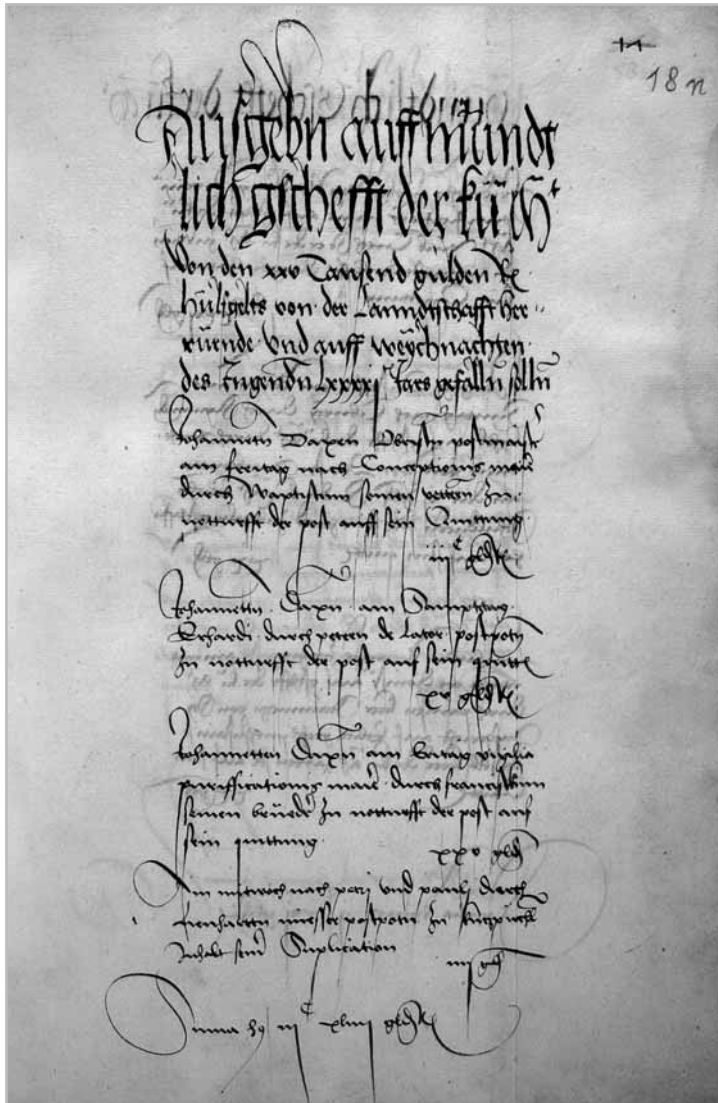 18 n
Ausgebn auff mündt
lich gschefft der kü
Von den xxv Tausend gulden R
hilfgelts von der Lanndtschafft her
rürende und auff weychnachten
des Lxxxxj Jars gefallen
Johannetn Daxen Obristn postmaister
am Freitag nach Conceptionis marie
durch Baptistam seinen vettern zu
notturfft der post auff sein Quittung
iijC
Johannetn Daxn am Sampstag
Erhardi durch petern de Lator postpotn
zu notturfft der post auf sein quittung
xv
Johannetten Daxn am freitag vigilia
puriffications marie durch
seinen brueder zu notturfft der post auf
sein quittung
xxv gldn
Am mitwoch nach petri und pauli durch
Lienhartn postpotn zu
Inhalt seiner Suplication
iiij gld
Suma iijC xliiij